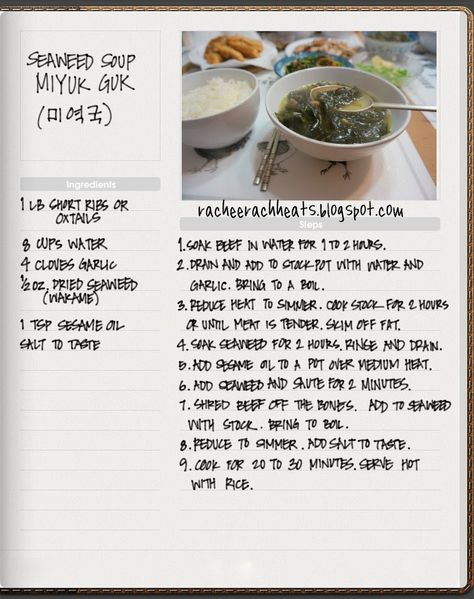 SEAWEED SOUP
MIYUK GUK
(미역국)
Ingredients
1 LB SHORT RIBS OR
OXTAILS
8 CUPS WATER
4 CLOVES GARLIC
1/2 OZ. DRIED SEAWEED
(WAKAME)
1 TSP SESAME OIL
SALT TO TASTE
racheerachheats.blogspot.com
Steps
1. SOAK BEEF IN WATER FOR 1 TO 2 HOURS.
2. DRAIN AND ADD TO STOCKPOT WITH WATER AND
GARLIC. BRING TO A BOIL.
3. REDUCE HEAT TO SIMMER. COOK STOCK FOR 2 HOURS
OR UNTIL MEAT IS TENDER. SKIM OFF FAT.
4. SOAK SEAWEED FOR 2 HOURS. RINSE AND DRAIN.
5. ADD SESAME OIL TO A POT OVER MEDIUM HEAT.
6. ADD SEAWEED AND SAUTE FOR 2 MINUTES.
7. SHRED BEEF OFF THE BONES. ADD TO SEAWEED
WITH STOCK. BRING TO BOIL.
8. REDUCE TO SIMMER. ADD SALT TO TASTE.
9. COOK FOR 20 TO 30 MINUTES. SERVE HOT
WITH RICE.